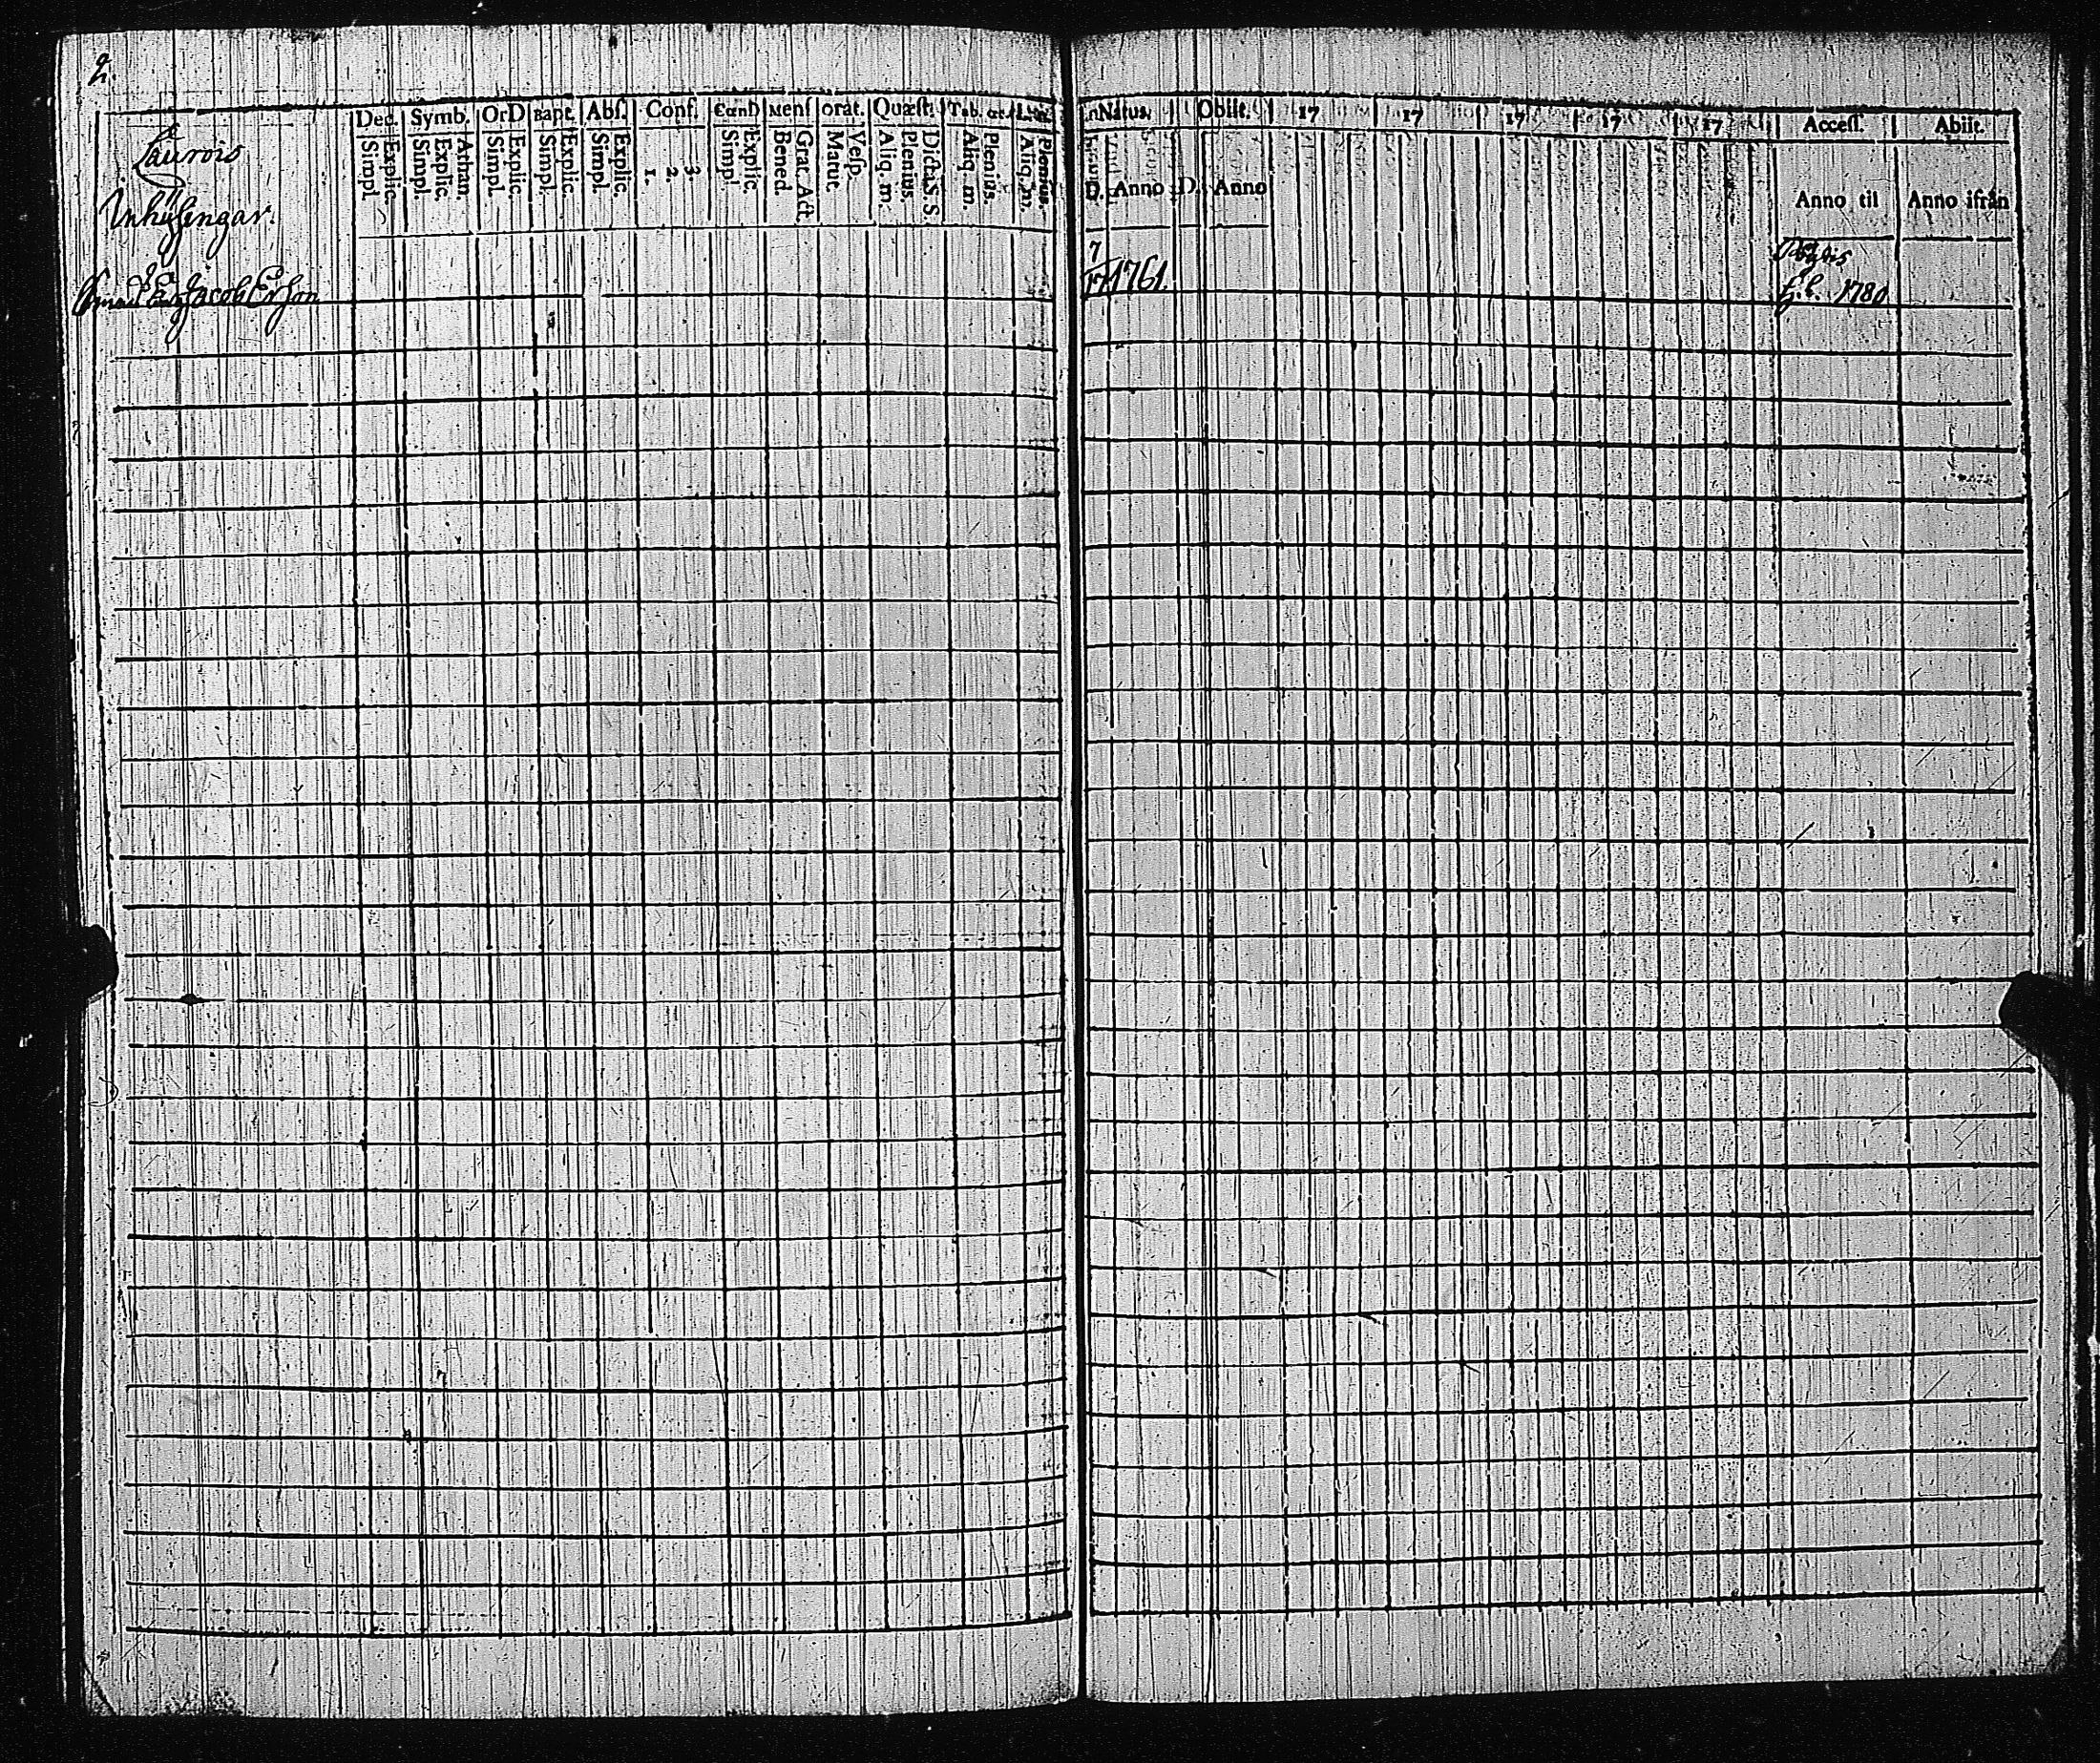 2.
Laurois
Inhÿsingar.
Dec. Symb. OrD Bapt. Abſ. Conf. CœnD Menſ orat. Quæſt. Tab. œc.
Simpl. Explic. Simpl. Explic. Athan. Simpl. Explic. Simpl. Explic. Simpl. Explic. 1. 2. 3. Simpl. Explic. Bened. Grat. Act. Matut. Veſp. Aliq. m. Plenius. Dicta S. S. Aliq. m. Plenius. Aliq. m. Plenius.
Natus. Obiit. 17 17 17 17 17 Acceſſ. Abiit.
D. Anno D. Anno Anno til Anno ifrån
Jacob Ersson
7
17 1761. 1780